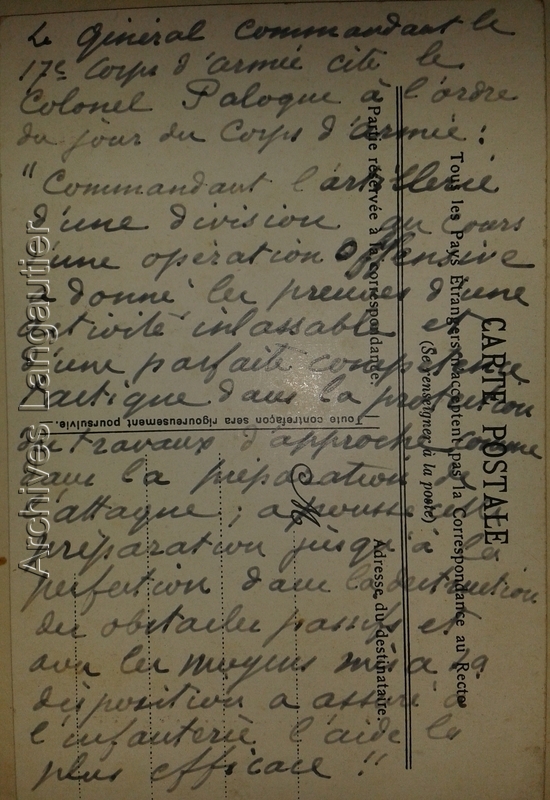 Le général commandant le
17e corps d'armée cite le
Colonel Paloque à l'ordre
du jour du Corps d'armée :
"Commandant l'artillerie
d'une division au cours
d'une opération offensive
a donné les preuves d'une
activité inlassable et
d'une parfaite compétence
tactique dans la protection
des travaux d'approche comme
dans la préparation de
l'attaque ; a poussé cette
préparation jusqu'à la
perfection dans la destruction
des obstacles passifs et
avec les moyens mis à sa
disposition a assuré à
l'infanterie l'aide la
plus efficace !"
CARTE POSTALE
Tous les Pays Étrangers n'acceptent pas la Correspondance au Recto
(Se renseigner à la poste)
Partie réservée à la correspondance.
Adresse du destinataire
M
Toute contrefaçon sera rigoureusement poursuivie.
Archives Langautier